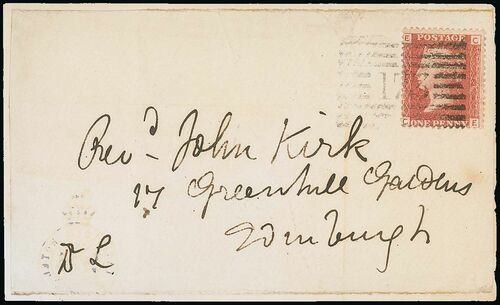 E C
POSTAGE
17
C E
ONE PENNY
Revd. John Kirk
17 Greenhill Gardens
Edinburgh
D L